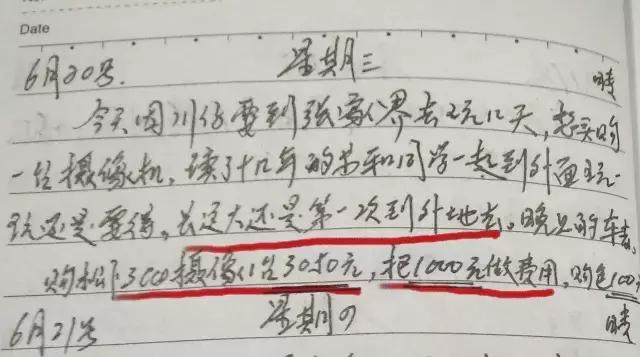 Date
6月20号. 星期三 晴
今天因川仔要到张家界去玩几天，想买购
一台摄像机，读了十几年的书和同学一起到外面玩一
玩还是要得。长这大还是第一次到外地去。晚 的车去。
购松下3000摄像机1台3050元，把1000元做费用，购包100元
6月21号 星期四 晴